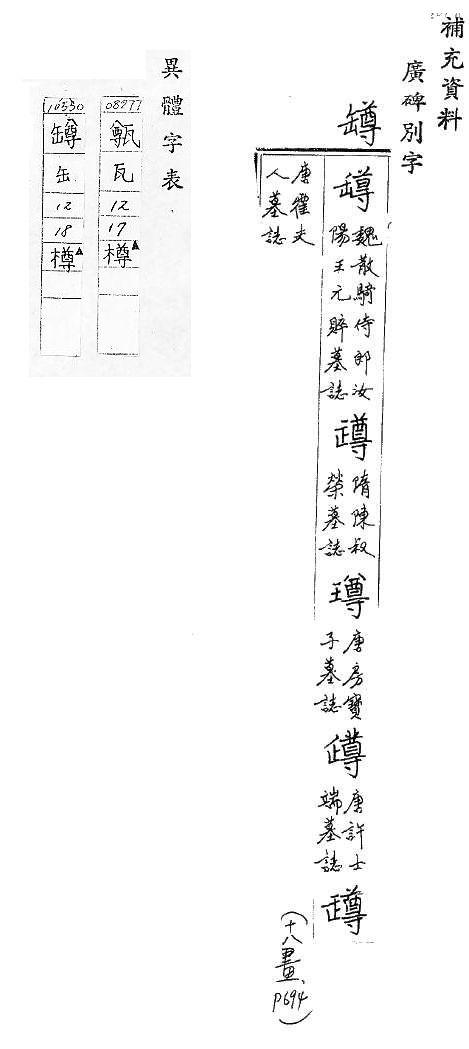 補充資料
廣碑別字
罇
罇
魏散騎侍郎汝
陽王元賥墓誌
隋陳叔
榮墓誌
唐房寶
子墓誌
唐許士
端墓誌
唐霍夫
人墓誌
(十八畫、
P694)
異體字表
08977
瓦
12
17
樽▲
10530
罇
缶
12
18
樽▲